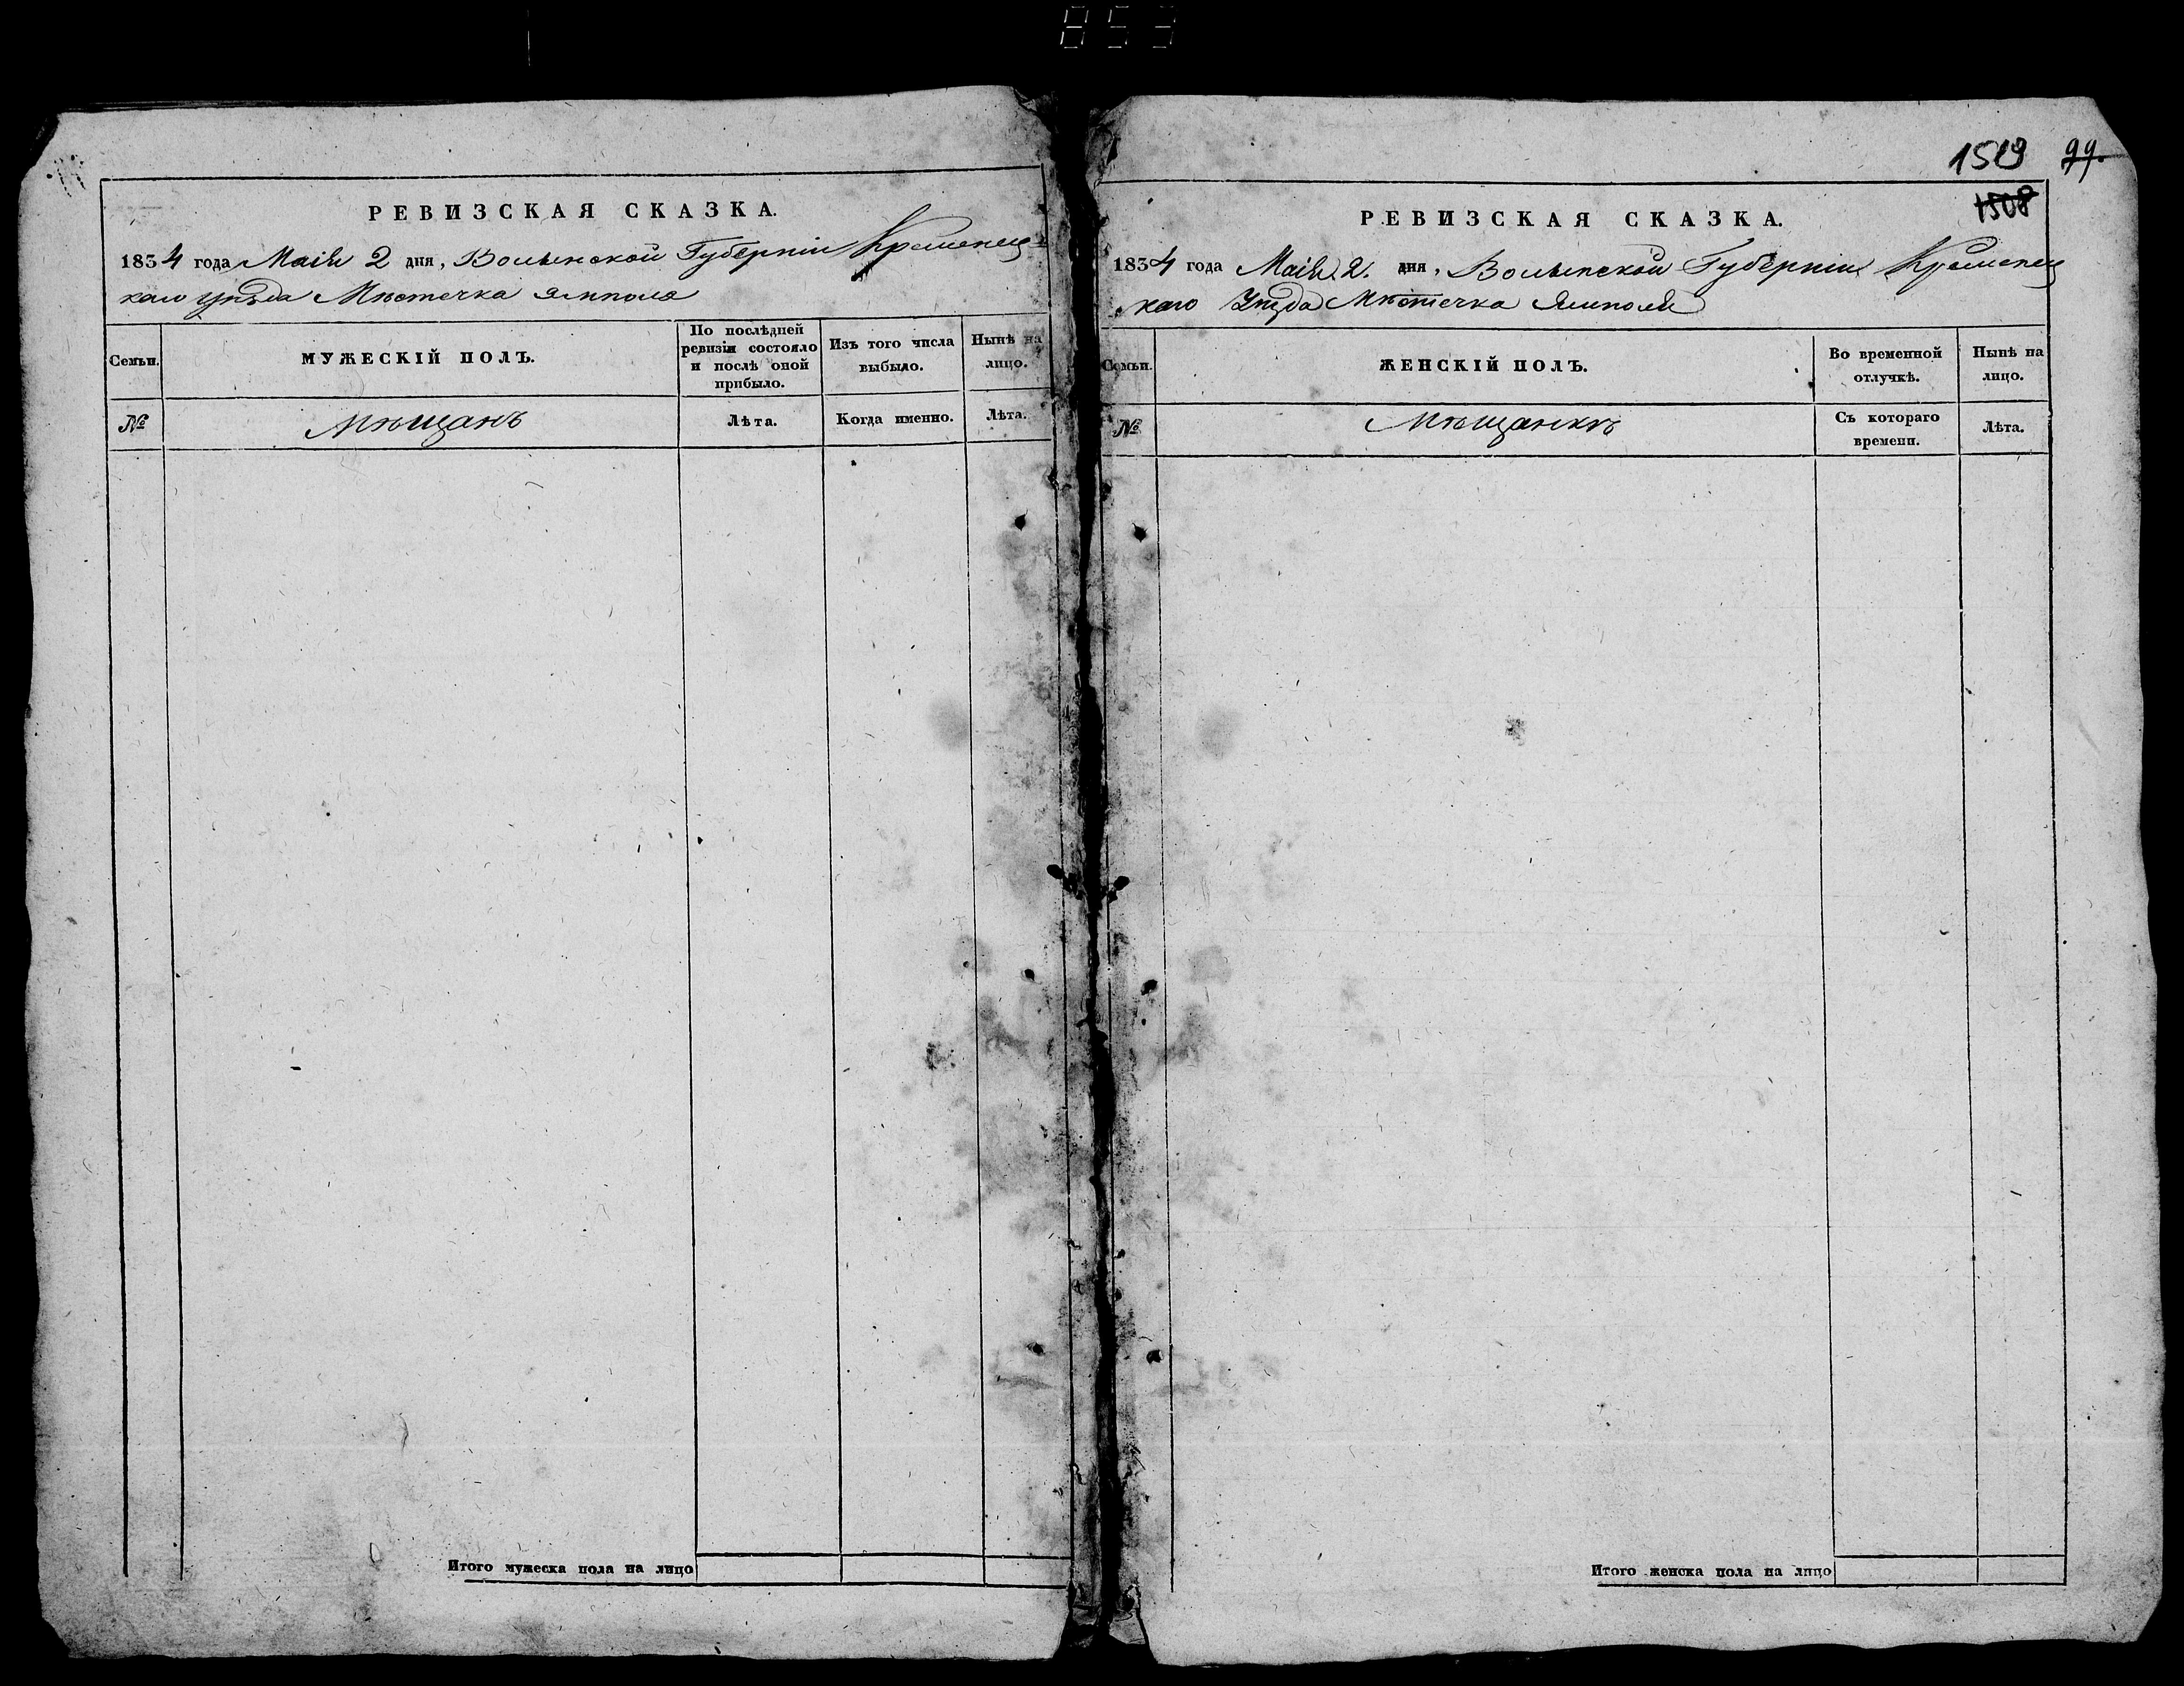 853
РЕВИЗСКАЯ СКАЗКА.
1834 года Маія 2 дня, Волынской Губерніи Кременец-
каго уѣзда Мѣстечка Ямполя
Семьи.
МУЖЕСКІЙ ПОЛЪ.
По послѣдней
ревизіи состояло
и послѣ оной
прибыло.
Изъ того числа
выбыло.
Нынѣ на
лицо.
№
Мѣщанъ
Лѣта.
Когда именно.
Лѣта.
Итого мужеска пола на лицо
1519 99.
1508
РЕВИЗСКАЯ СКАЗКА.
1834 года Маія 2. дня, Волынской Губерніи Кременец
каго Уѣзда Мѣстечка Ямполя
Семьи.
ЖЕНСКІЙ ПОЛЪ.
Во временной
отлучкѣ.
Нынѣ на
лицо.
№
Мѣщанкъ
Съ котораго
времени.
Лѣта.
Итого женска пола на лицо